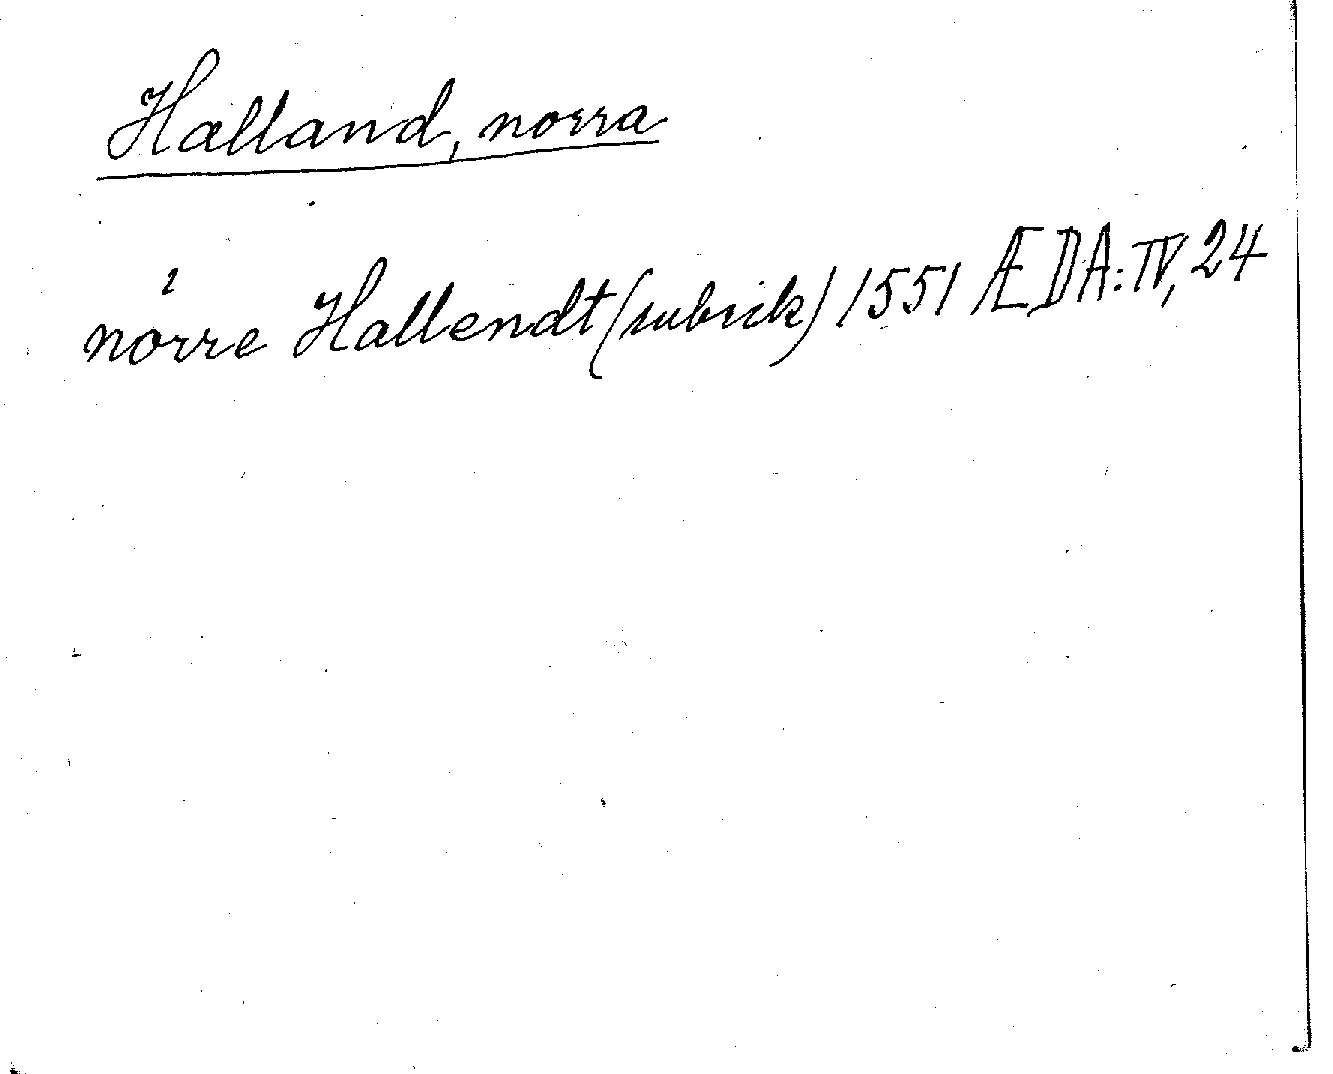 Halland, norra
nórre Hallendt (rubrik) 1551 ÆDA: IV, 24